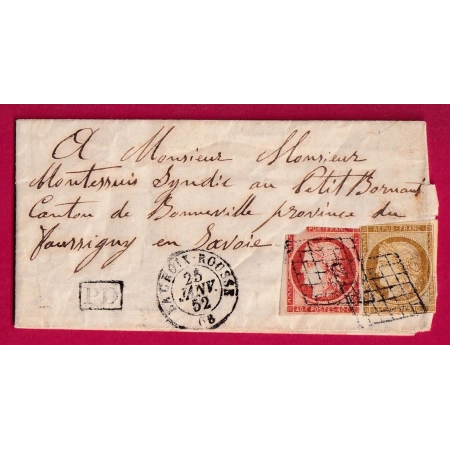 A Monsieur Monsieur
Montessuis Syndic au Petit Bornand
Canton de Bonneville province du
Faussigny en Savoie
PD
LACROIX-ROUSSE
25
JANV.
52
68
REPUB. FRANC.
40 C POSTES 40 C